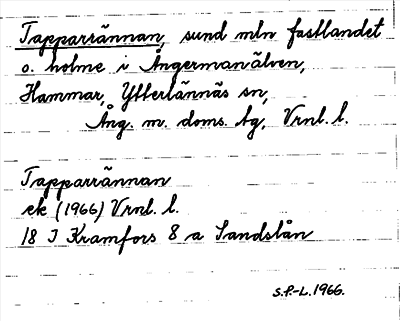 Tapparrännan, sund mln fastlandet
o. holme i Ångermanälven,
Hammar, Ytterlännäs sn,
Ång. m. doms. tg, Vrnl. l.
Tapparrännan
ek (1966) Vrnl. l.
18 J Kramfors 8 a Sandslån
S.P.-L. 1966.